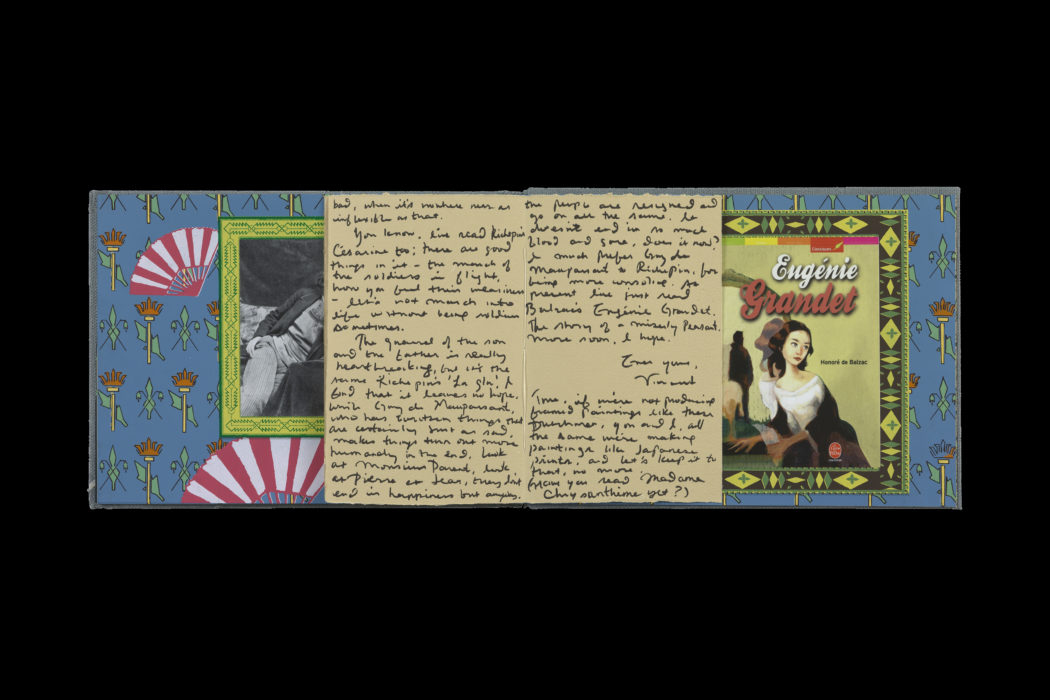 bad, when it's nowhere near as
inflexible as that.
You know, I've read Richepin's
Césarine too; there are good
things in it - the march of
the soldiers in flight,
how you feel their weariness
- let's not march into
life without being soldiers
sometimes.
The quarrel of the son
and the father is really
heartbreaking, but it's the
same Richepin's 'La glu', I
find that it leaves no hope,
while Guy de Maupassant,
who has written things that
are certainly just as sad,
makes things turn out more
humanely in the end. Look
at Monsieur Parent, look
at Pierre et Jean, they don't
end in happiness but anyway,
the people are resigned and
go on all the same. It
doesn't end in so much
blood and gore, does it now?
I much prefer Guy de
Maupassant to Richepin, for
being more consoling. At
present I've just read
Balzac's Eugénie Grandet.
The story of a miserly peasant.
More soon, I hope.
Ever yours,
Vincent
True, if we're not producing
framed paintings like these
Frenchmen, you and I, all
the same we're making
paintings like Japanese
prints, and let's keep it to
that, no more.
(Have you read Madame
Chrysanthème yet?)
Classiques
Eugénie
Grandet
Honoré de Balzac